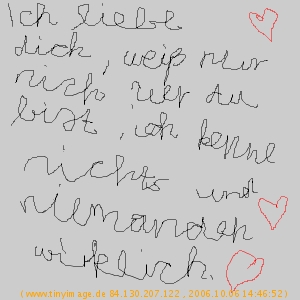 Ich liebe
dich, weiß nur
nich wer du
bist, ich kenne
nichts und
niemanden
wirklich.
www.tinyimage.de 84.130.207.122 , 2006.10.06 14:46:52)